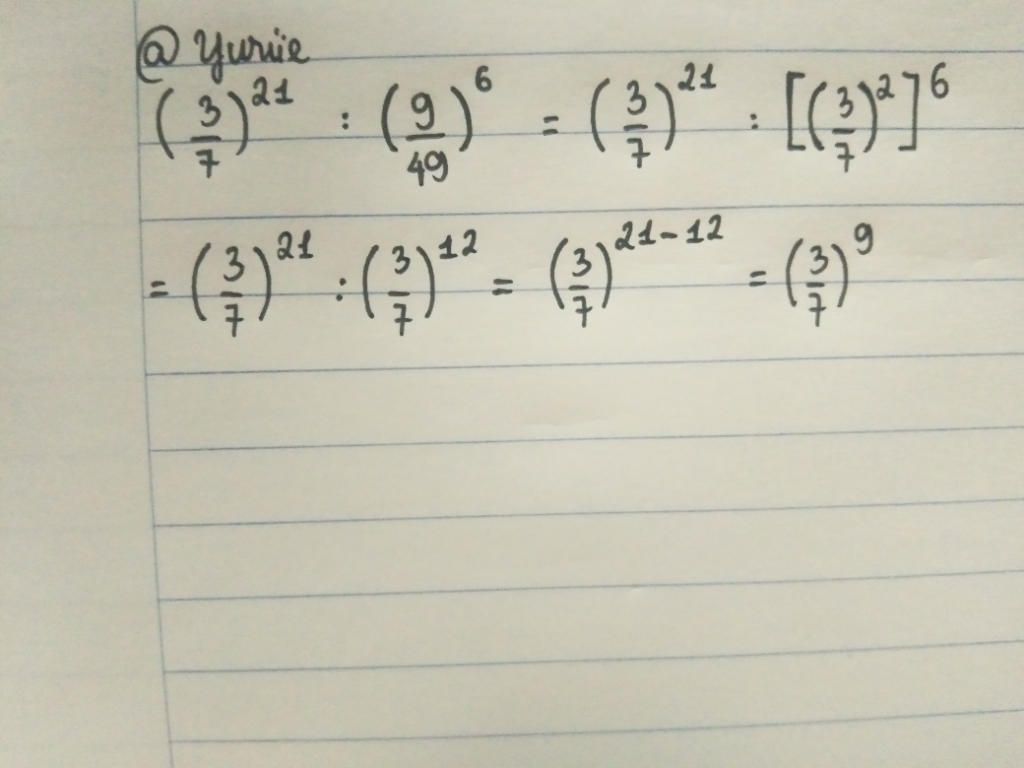 @ Yuriie
(3/7)^21 : (9/49)^6 = (3/7)^21 : [(3/7)^2]^6
= (3/7)^21 : (3/7)^12 = (3/7)^21-12 = (3/7)^9